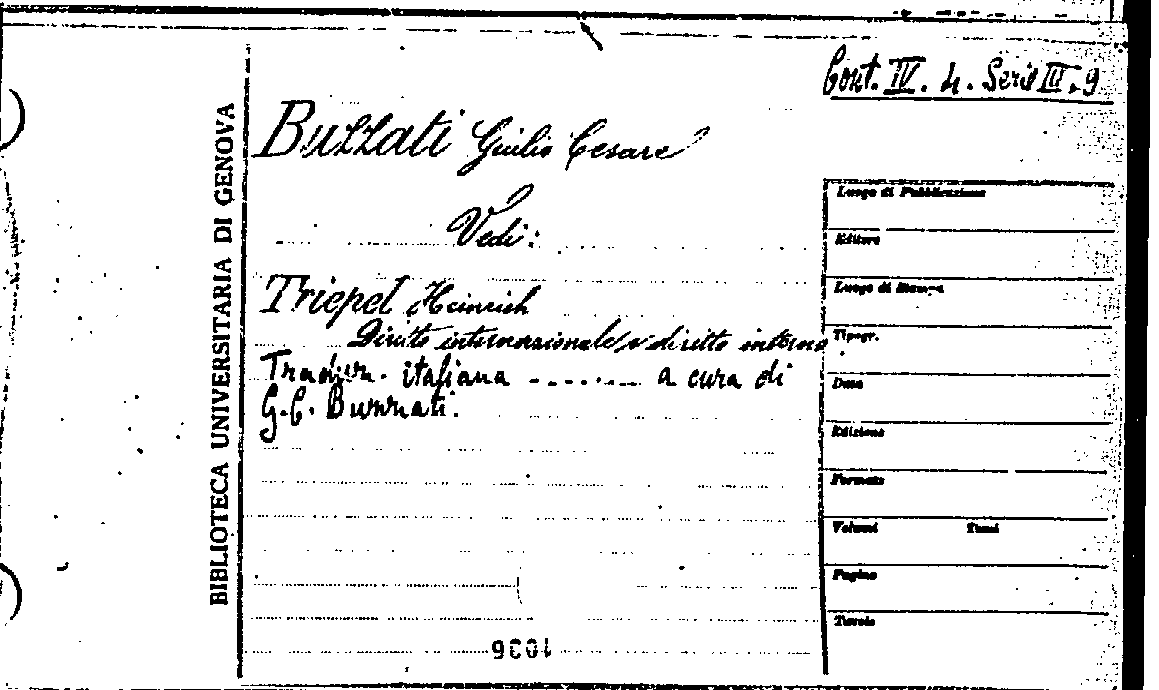 Cont. IV. 4. Serie III. 9
BIBLIOTECA UNIVERSITARIA DI GENOVA
Buzzati Giulio Cesare
Vedi:
Triepel Heinrich
Diritto internazionale e diritto interno
Traduz. italiana ........ a cura di
G. C. Buzzati.
Luogo di Pubblicazione
Editore
Luogo di Stampa
Tipogr.
Data
Edizione
Formato
Volumi Tomi
Pagine
Tavole